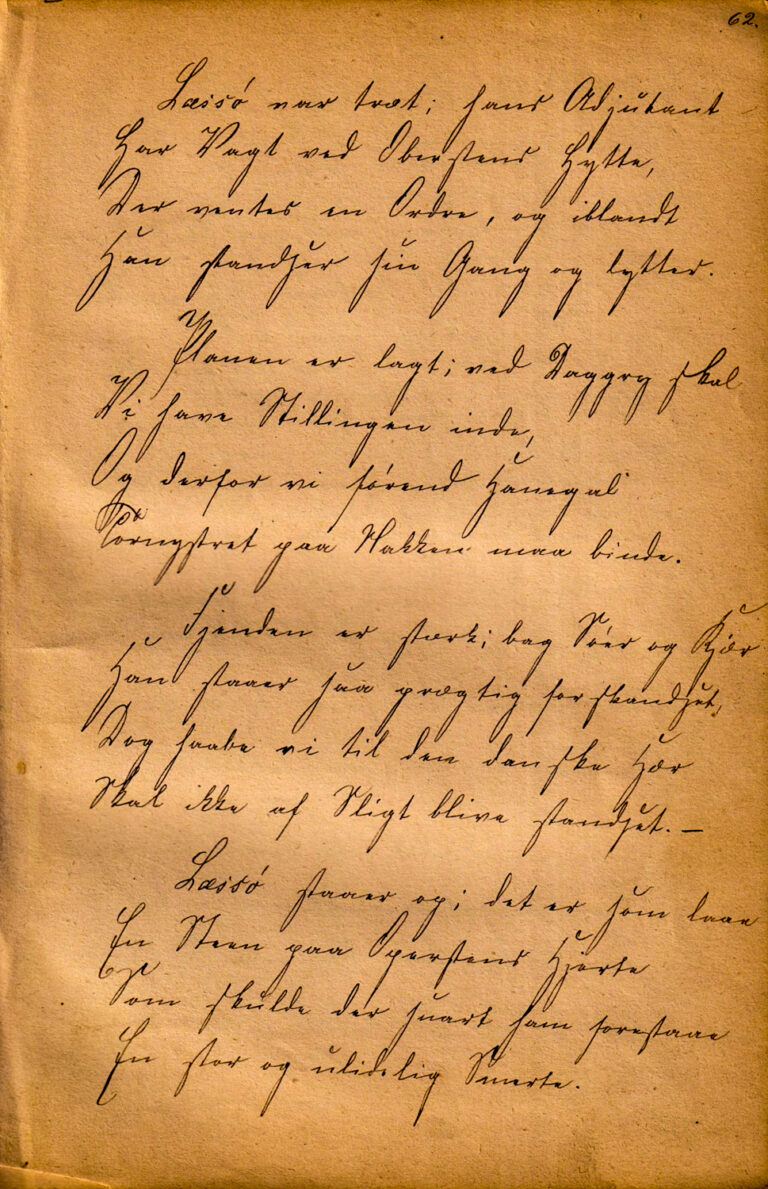 62.
Læssó var træt; hans Adjutant
Har Vagt ved Oberstens Hytte,
Der ventes en Ordre, og iblandt
Han standser sin Gang og lytter.
Planen er lagt; ved Daggry skal
Vi have Stillingen inde,
Og derfor vi fórend Hanegal
Tornystret paa Nakken maa binde.
Fjenden er stærk; bag Sóer og Kjær
Han staaer saa prægtig forskandset,
Dog haabe vi til den danske Hær
Skal ikke af Sligt blive standset. —
Læssó staaer op; det er som laae
En Steen paa Operstens Hjerte
Som skulde der snart ham forestaae
En stor og ulidelig Smerte.